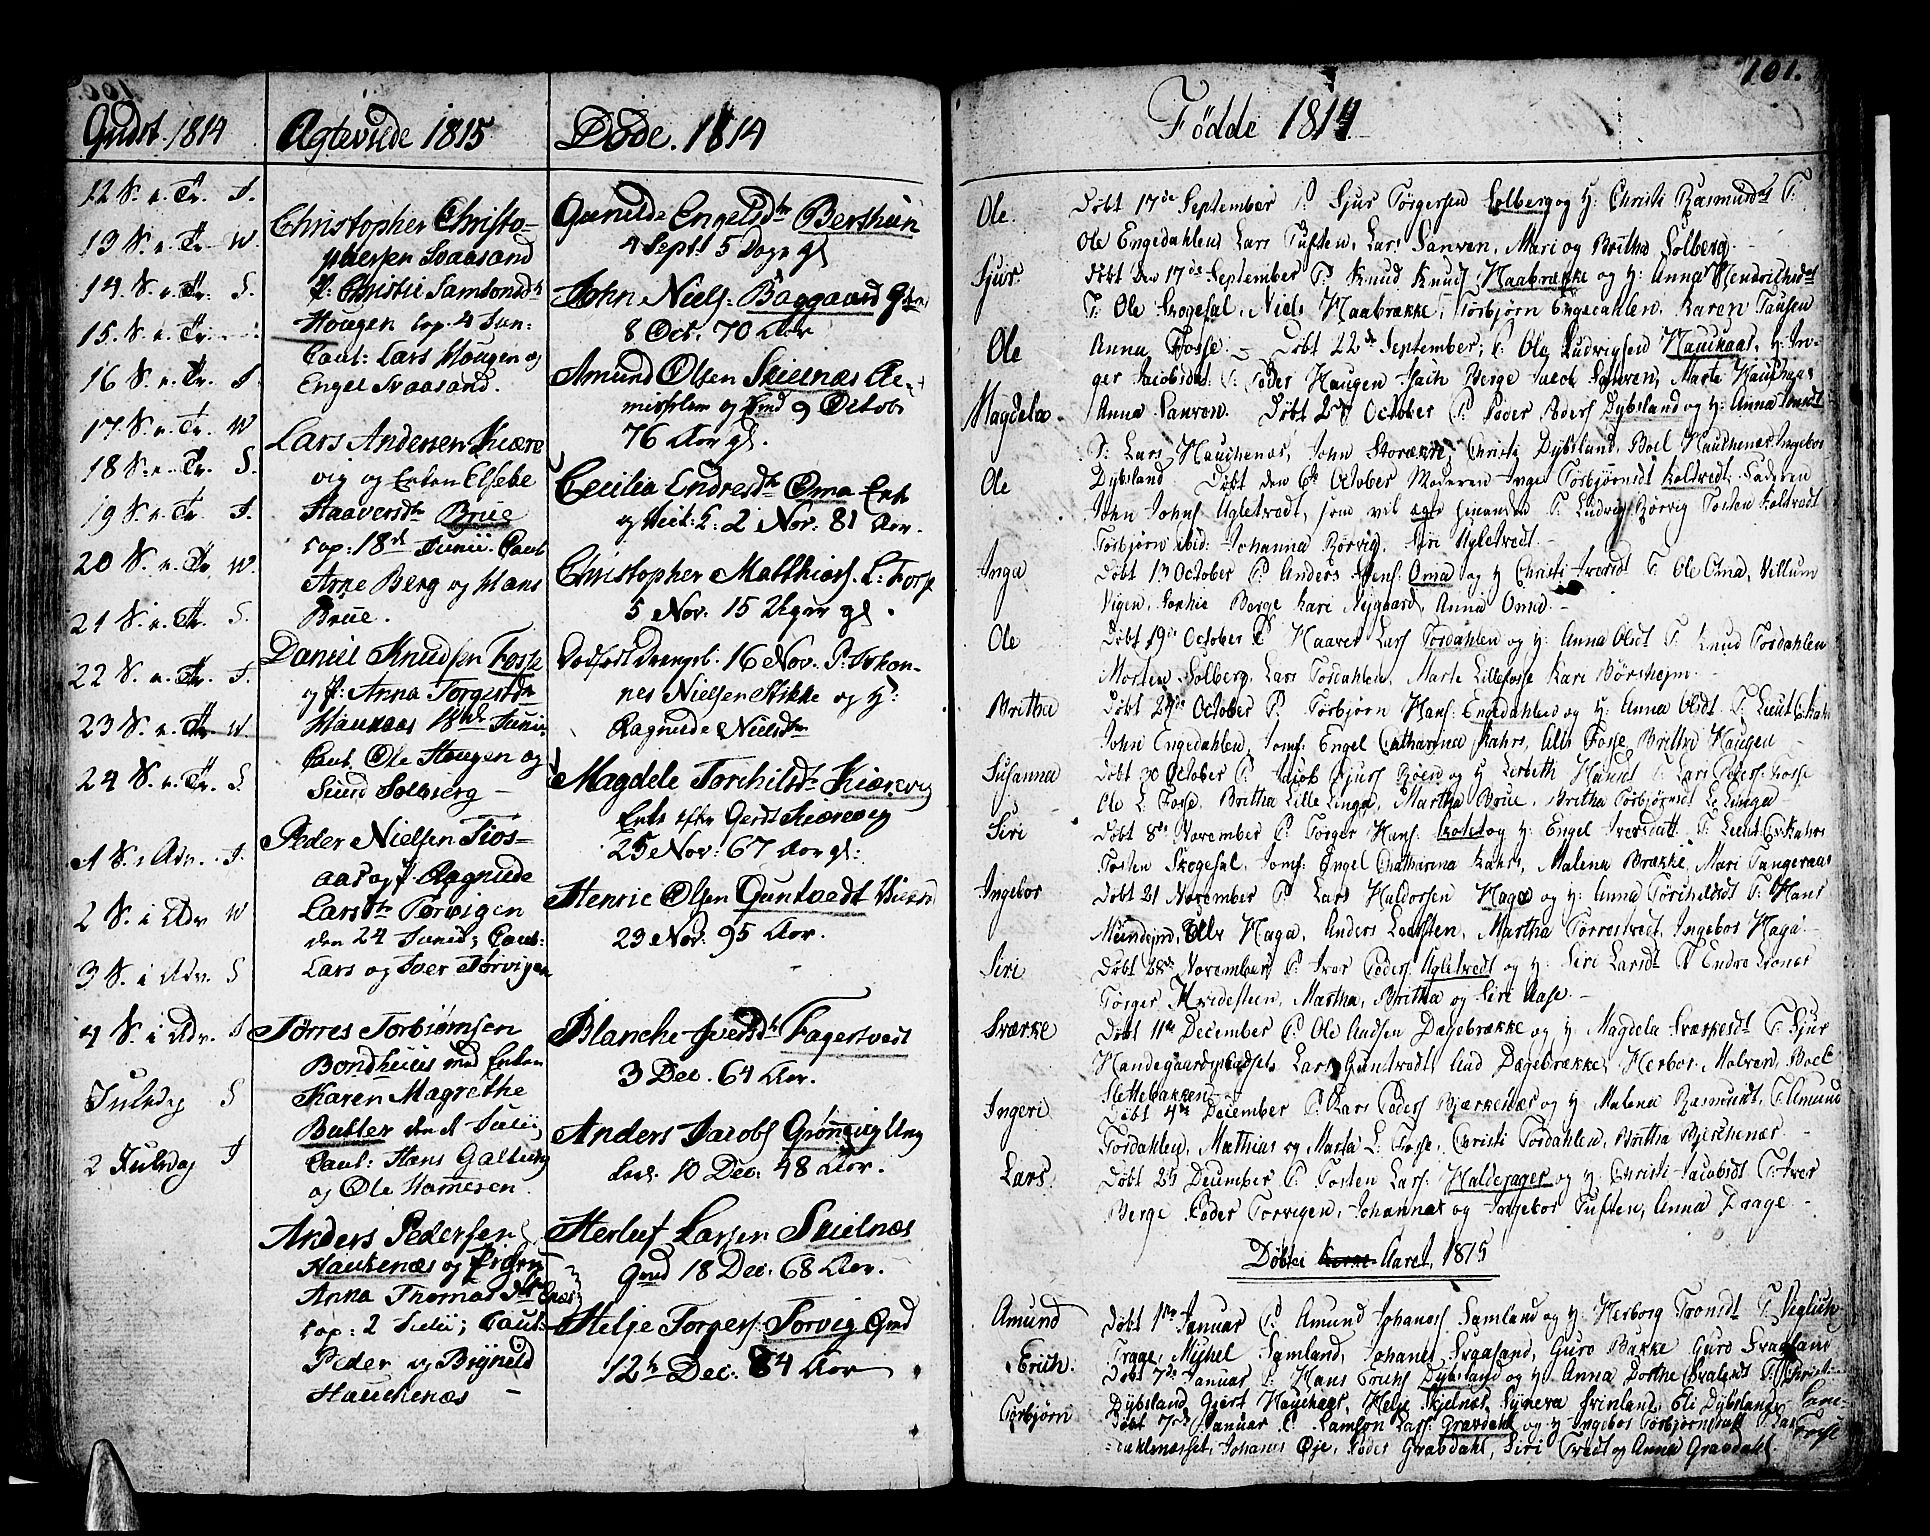 Gudst. 1814
12 S. e. Tr. J.
13 S. e. Tr. W.
14 S. e. Tr. S.
15. S. e. Tr.
16 S. e. Tr. J.
17 S. e. Tr. W
18 S. e. Tr. S.
19 S. e. Tr. J.
20 S. e. Tr. W.
21 S. e. Tr. S.
22 S. e. Tr. J.
23 S. e. Tr. W
24 S. e. Tr. S
1 S. i Adv. J.
2 S. i Adv W
3 S. i Adv. S
4 S. i Adv. J
Juledag S
2 Juledag J
Agteviede 1815
Christopher Christo-
phersen Svaasand
P. Christie Samsonsdtr
Hougen cop. 4 Jun:
Caut: Lars Hougen og
Engel Svaasand.
Lars Andersen Kiære
vig og Enken Elsebe
Haaversdtr Brue
cop: 18de Junii. Caut
Arne Berg og Hans
Brue.
Daniel Knudsen Fosse
og P: Anna Torgersdtr
Haukaas 18de Junii
Caut. Ole Hougen og
Siurd Solberg -
Peder Nielsen Fios-
aas og P. Ragnilde
Larsdtr Torvigen
den 24 Junii; Caut:
Lars og Iver Torvigen
Tørres Torbiørnsen
Bondhuus med Enken
Karen Magrethe
Butler den 1 Julii;
Caut: Hans Galtung
og Ole Hannesen.
Anders Pedersen
Haukenæs og Pigen
Anna Thomasdtr
cop: 2 Julii; Caut:
Peder og Brynild
Hauckenæs -
Døde. 1814
Gunilde Engelsdtr Berthun
4 Sept. 5 Dage gl
John Niels. Baggaard
8 Oct. 70 Aar
Amund Olsen Skielnæs
og Gmd 9 Octob:
76 Aar gl.
Cecilia Endresdtr Oma Enk
2 Nov. 81 Aar.
Christopher Matthias. L. Fosse
5 Nov. 15 Uger gl.
Dødfødt Drengeb. 16 Nov. P. Johan-
nes Nielsen Stikke og H:
Ragnilde Nielsdtr
Magdele Torchilsdtr Kiærevig
Enke efter Gerdt Kiærevig
25 Nov: 67 Aar gl:
Henric Olsen Guntvedt
23 Nov: 95 Aar.
Blanche Iversdtr Fagertvedt
3 Dec. 64 Aar.
Anders Jacobs Grønvig Ung
karl. 10 Dec: 48 Aar.
Herluf Larsen Skielnæs
Gmd 18 Dec. 68 Aar.
Helje Torgers: Torvig Gmd
12te Dec. 84 Aar
101.
Fødde 1814
Ole. Døbt 17de September P. Sjur Torgersen Solberg og H: Christi Rasmusdt F.
Ole Engedahlen Lars Tuften, Lars Sanven, Mari og Britha Solberg.
Sjur. Døbt den 17de September P. Knud Knuds Haabrække og H: Anna Hendrichsdt
F. Ole Skogesal, Niels Haabrække, Torbjørn Engedahlen, Karen Tausen
Ole Anna Fosse. - Døbt 22de September, P. Ole Ludvigsen Hauckaas, H: In-
ger Jacobsdt. F. Peder Haugen, Berge Jacob Sanven, Marte Hauchaas
Magdela. Anna Sanven. Døbt 2de October P. Peder Peders Dybsland og H: Anna
F. Lars Hauchenæs, John Storækre, Christi Dybsland, Boel Hauchenæs, Ingebor
Ole Dybsland. Døbt den 6te October Moderen Inga Torbjørnsdt Koltvedt. Faderen
John Johns Agletvedt, som vil ægte hinanden F. Ludvig Rørvig Tosten Koltvedt
Torbjørn ibid: Johanna Rørvig, Siri Agletvedt. -
Inga Døbt 13 October P. Anders Jens: Oma og H Christi Iversdt F. Ole Oma, Villum
Vigen, Sophie Berge Kari Nygaard, Anna Oma. -
Ole Døbt 19de October P. Haaver Lars Tordahlen og H: Anna Olsdt F. Knud Tordahlen
Morten Solberg, Lars Tordahlen, Marte Lillefosse Kari Børsheim.
Britha Døbt October P. Torbjørn Hans: Engedahlen og H: Anna Olsdt F. Leut Cskahr
John Engedahlen, Jomf: Engel Catharina Kahrs, Fosse, Britha Haugen
Susanna Døbt 30 October P. Jacob Sjurs og H Lisbeth Hansdt F. Lars Peders: Fosse
Ole L. Fosse, Britha Lille Linga, Martha Brue, Britha Torbjørnsdt Le Linga
Siri Døbt 8de November P. Torger Hans: og H: Engel Iversdatt. F. Leut Cskahrs
Tosten Skogesal, Jomf: Engel Catharina Kahrs, Malena Brække, Mari Tangeraas
Ingebor Døbt 21 November P. Lars Haldorsen Haga og H: Anna Torchelsdt F. Hans
Haga, Anders Leksten, Martha Torrestvedt, Ingebor Haga.
Siri Døbt 28de November P. Iver Peders: Agletvedt og H: Siri Larsdt F Endre
Torger Hvidesteen, Martha, Britha og Siri Aase. -
Sværke Døbt 11te December P. Ole Audsen Dagebrække og H: Magdela Sværkesdt F. Sjur
Lars Guntvedt, Aud Dagebrække, Herbor Malven, Boel
Slettebakken.
Ingeri Døbt 4de December P. Lars Peders Bjærkenæs og H Malena Rasmusdt, F. Amund
Tordahlen, Mathias og Marta L. Fosse, Christi Tordahlen, Britha Birchenæs.
Lars Døbt 25 December P. Tosten Lars: Haldejager og H: Christi Jacobsdt F. Iver
Berge Peder Torvigen, Johannes og Ingebor Tuften, Anna Drage. -
Døbte Aaret, 1815
Amund Døbt 1ste Januar P. Amund Johanes Samland og H: Herborg Tronsdt F. Viglich
Drage, Michel Samland, Johanes Svaasand, Guro Bakke Guro Svaasand
Erich. Døbt 7de Januar P. Hans Erichs Dybsland og H: Anna Dorthe F. Christi
Dybsland, Gjert Hauchaas, Helje Skjelnæs, Synneva Frinland, Eli Dybsland
Torbjørn Døbt 7de Januar P. Samson Lars: Gravdahl og H Ingebor Torbjørnsdatt
Johanes Øje, Peder Gravdahl, Siri Tvedt og Anna Gravdahl.